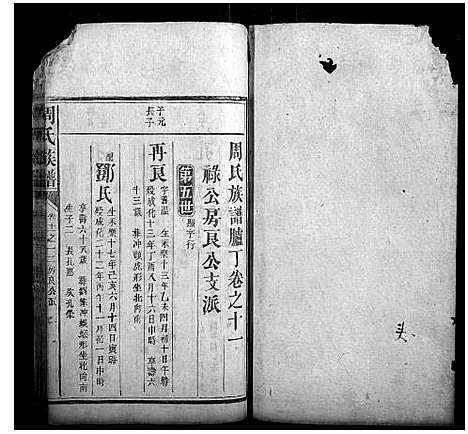 周氏族譜臚丁卷之十一
祿公房良公支派
第五世 顯字行
子元
長子
再良
字善溫 生永樂十三年乙未四月初十日午時
歿成化十三年丁酉八月十六日申時 享壽六
十三歲 葬冲頭虎形坐北向南
配鄒氏
生永樂十七年己亥六月十四日寅時
歿成化二十二年丙午十一月初一日申時
享壽六十八歲 葬劉家冲蜈蚣形坐北向南
生子二 長孔恩 次孔榮
周氏族譜
卷十一之一
頭